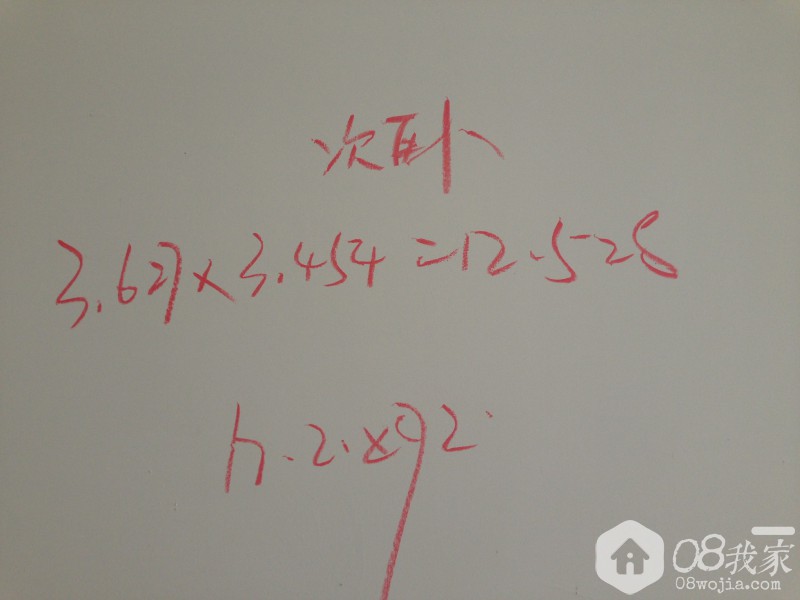 次卧
3.627×3.454=12.528
h.2.892
08我家
08wojia.com